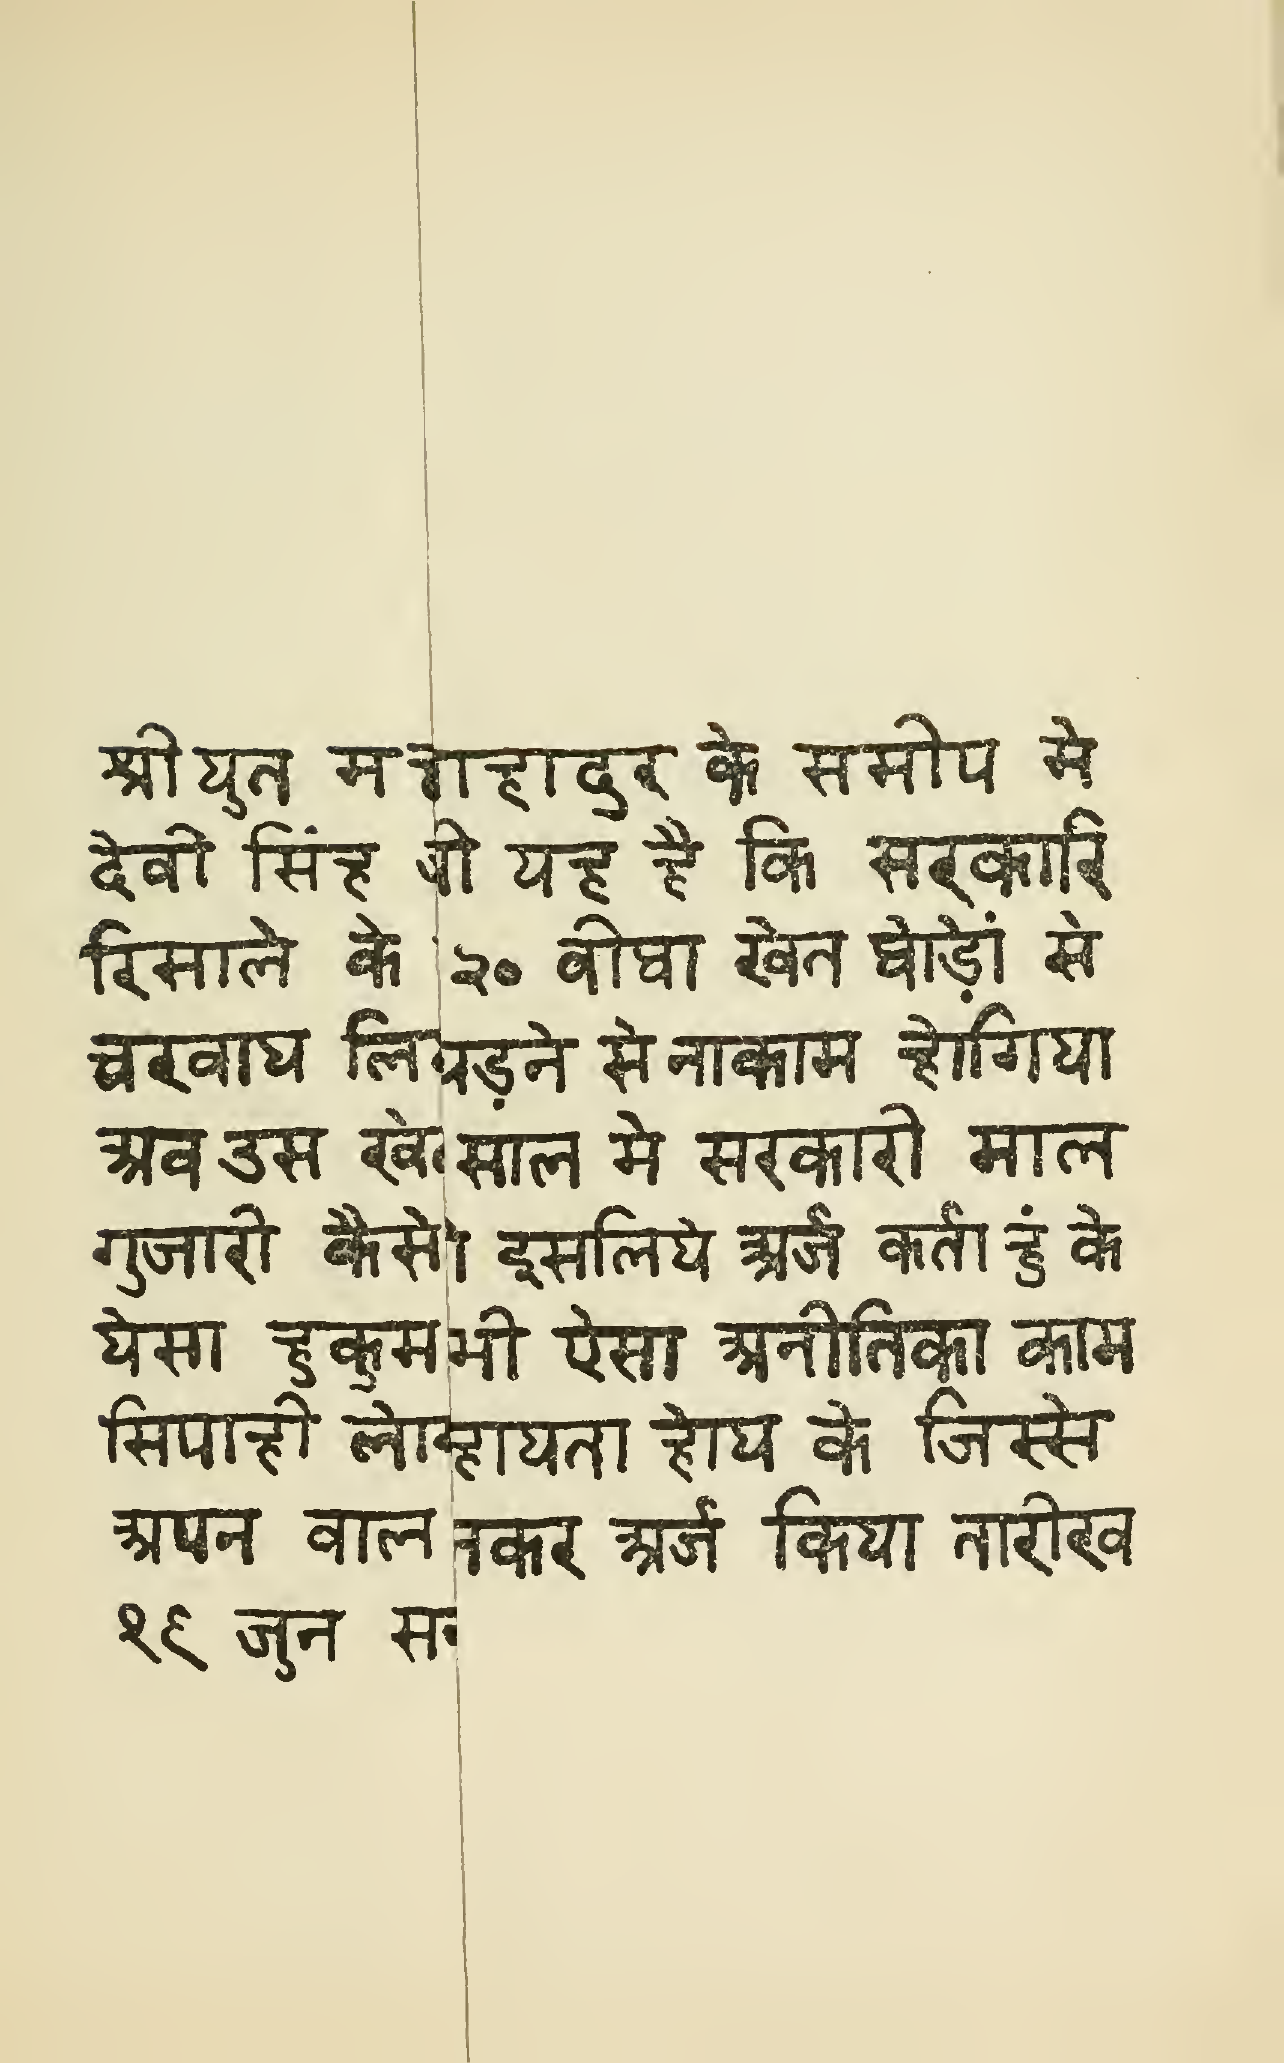 श्रीयुत म हादुर के समीप मे
देवी सिंह यह है कि सरकारि
रिसाले के २० वीघा खेत घोड़ों से
चरवाय लि पड़ने से नाकाम होगिया
अव उस खे साल मे सरकारी माल
गुजारी कैसे इसलिये अर्ज कर्ता हुं के
येसा हुकुम भी ऐसा अनीतिका काम
सिपाही लो हायता होय के जिस्से
अपन वाल नकर अर्ज किया तारीख
१९ जुन सन